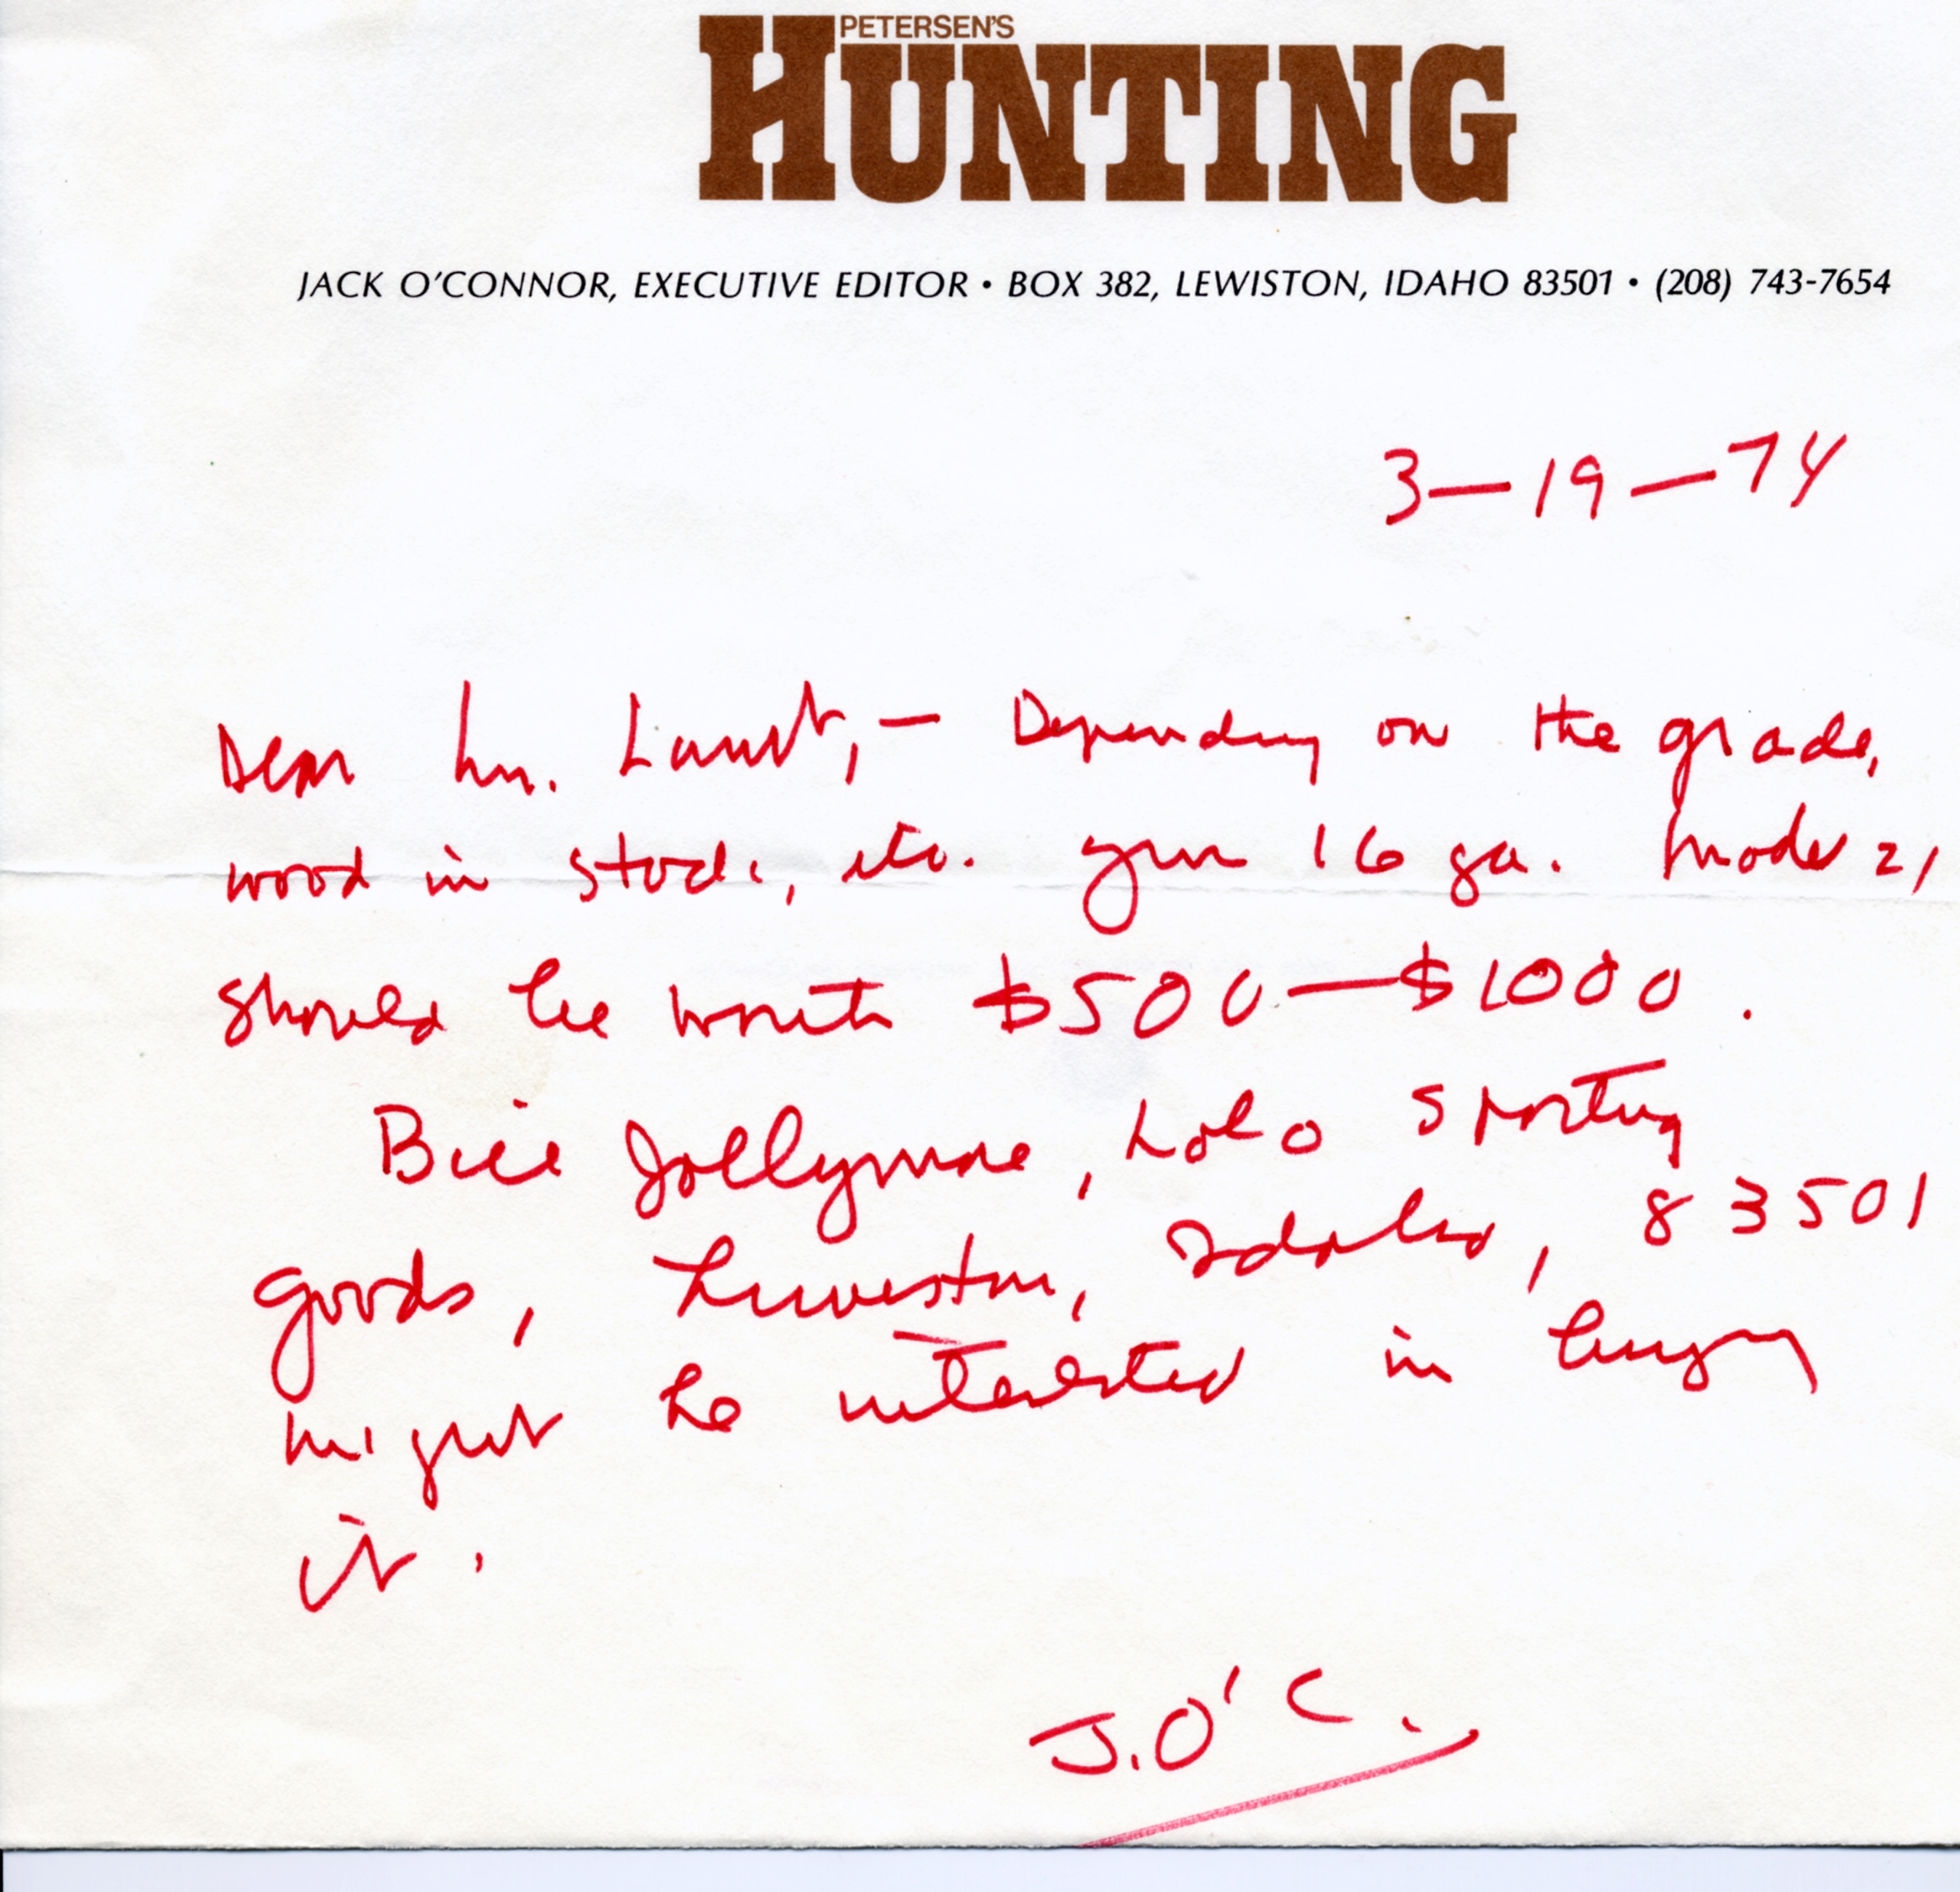 PETERSEN'S
HUNTING
JACK O'CONNOR, EXECUTIVE EDITOR • BOX 382, LEWISTON, IDAHO 83501 • (208) 743-7654
3—19—74
Dear Mr. — Depending on the grade,
wood in stock, etc. your 16 ga. Model 21
should be worth $500—$1000.
Bill Jollymore, Lolo Sporting
Goods, Lewiston, Idaho, 83501
might be interested in buying
it.
J.O'C.